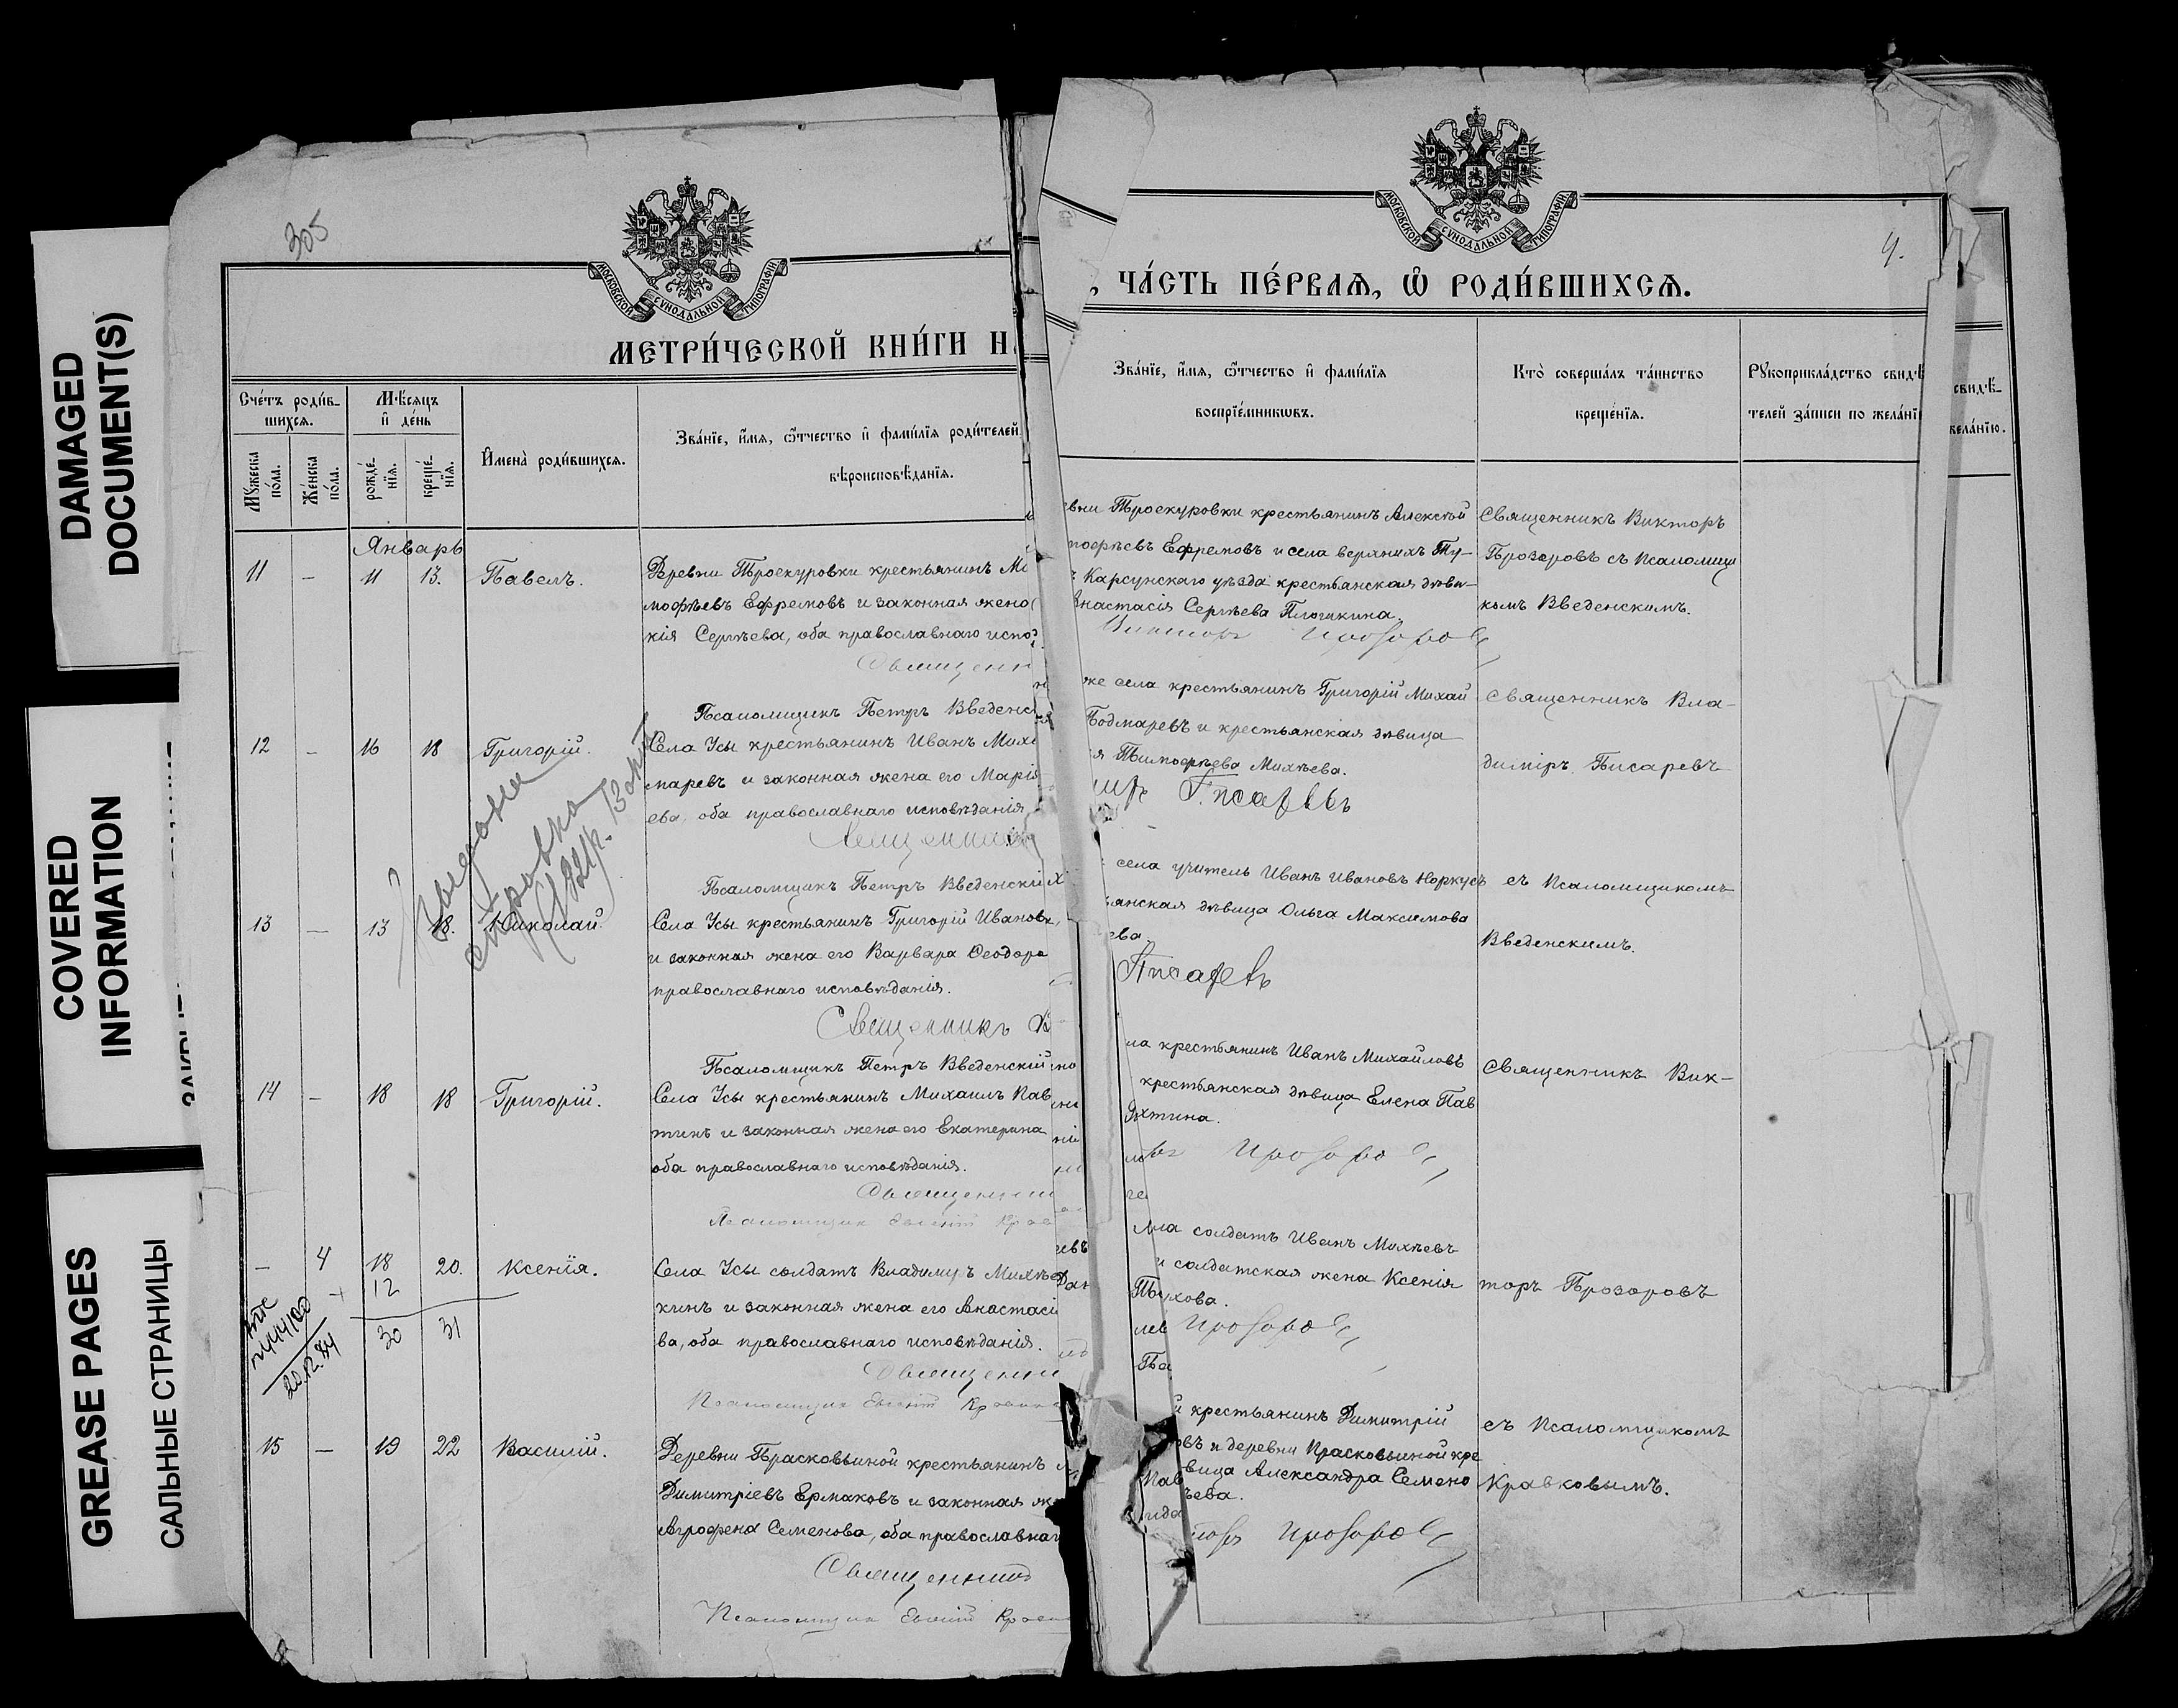 DAMAGED
DOCUMENT(S)
COVERED
INFORMATION
GREASE PAGES
САЛЬНЫЕ СТРАНИЦЫ
305
МОСКОВСКОЙ СѴНОДАЛЬНОЙ ТИПОГРАФІИ
МЕТРИ́ЧЕСКОЙ КНИ́ГИ Н
Сче́тъ роди́в-
шихсѧ.
Мѣ́сѧцъ
и҆ де́нь
Мꙋ́жеска
по́ла.
Же́нска
по́ла.
рожде́-
нїѧ.
креще́-
нїѧ.
И҆мена̀ роди́вшихсѧ.
Зва́нїе, и҆́мѧ, ѻ҆́тчество и҆ фами́лїѧ роди́телей
вѣроисповѣ́данїѧ.
Январь
11 – 11 13. Павелъ.
Деревни Троекуровки крестьянинъ
моѳѣевъ Ефремовъ и законная жена
кія Сергѣева, оба православнаго испо
Священн
Псаломщикъ Петръ Введенс
12 – 16 18 Григорій.
Села Усы крестьянинъ Иванъ Миха
маревъ и законная жена его Марія
ева, оба православнаго исповѣданія
Священник
Выдана
справка
Псаломщикъ Петръ Введенскій
13 – 13 18. Николай.
Села Усы крестьянинъ Григорій Ивановъ,
и законная жена его Варвара Ѳеодоро
православнаго исповѣданія.
Священникъ В
Псаломщикъ Петръ Введенскій
14 – 18 18 Григорій.
Села Усы крестьянинъ Михаилъ Пав
тинъ и законная жена его Екатерина
оба православнаго исповѣданія.
Священни
Псаломщик Евгеній Крав
– 4 18 20. Ксенія.
12
30 31
Села Усы солдатъ Владиміръ Михѣе
кинъ и законная жена его Анастасі
ва, оба православнаго исповѣданія.
Священни
Псаломщик Евгеній Кравк
15 – 19 22 Василій.
Деревни Прасковьиной крестьянинъ
Димитріевъ Ермаковъ и законная же
Агрофена Семенова, оба православнаг
Священник
Псаломщик Евгеній Крав
МОСКОВСКОЙ СѴНОДАЛЬНОЙ ТИПОГРАФІИ
4.
, ЧА́СТЬ ПЕ́РВАѦ, Ѡ҆ РОДИ́ВШИХСѦ.
Зва́нїе, и҆́мѧ, ѻ҆́тчество и҆ фами́лїѧ
воспрїе́мникѡвъ.
Кто̀ соверша́лъ та́инство
креще́нїѧ.
Рꙋкоприкла́дство свидѣ́
телей за́писи по жела́нїю
свидѣ́-
жела́нїю.
евни Троекуровки крестьянинъ Алексѣй
моѳѣевъ Ефремовъ и села верхнихъ Ту-
Карсунскаго уѣзда крестьянская дѣви-
Анастасія Сергѣева Плошкина.
Викторъ Прозоров
Священникъ Викторъ
Прозоровъ съ Псаломщи
комъ Введенскимъ.
же села крестьянинъ Григорій Михай
Бодмаревъ и крестьянская дѣвица
Тимоѳѣева Михѣева.
Писаревъ
Священникъ Вла-
диміръ Писаревъ
села учитель Иванъ Ивановъ Норкусъ
янская дѣвица Ольга Максимова
ева
Писаревъ
съ Псаломщикомъ
Введенскимъ.
ла крестьянинъ Иванъ Михайловъ
крестьянская дѣвица Елена Пав
хтина.
Прозоров
Священникъ Вик-
ла солдатъ Иванъ Михѣевъ
и солдатская жена Ксенія
хова.
Прозоров
торъ Прозоровъ
й крестьянинъ Димитрій
овъ и деревни Прасковьиной кре
вица Александра Семено
ева.
Прозоров
съ Псаломщикомъ
Кравковымъ.